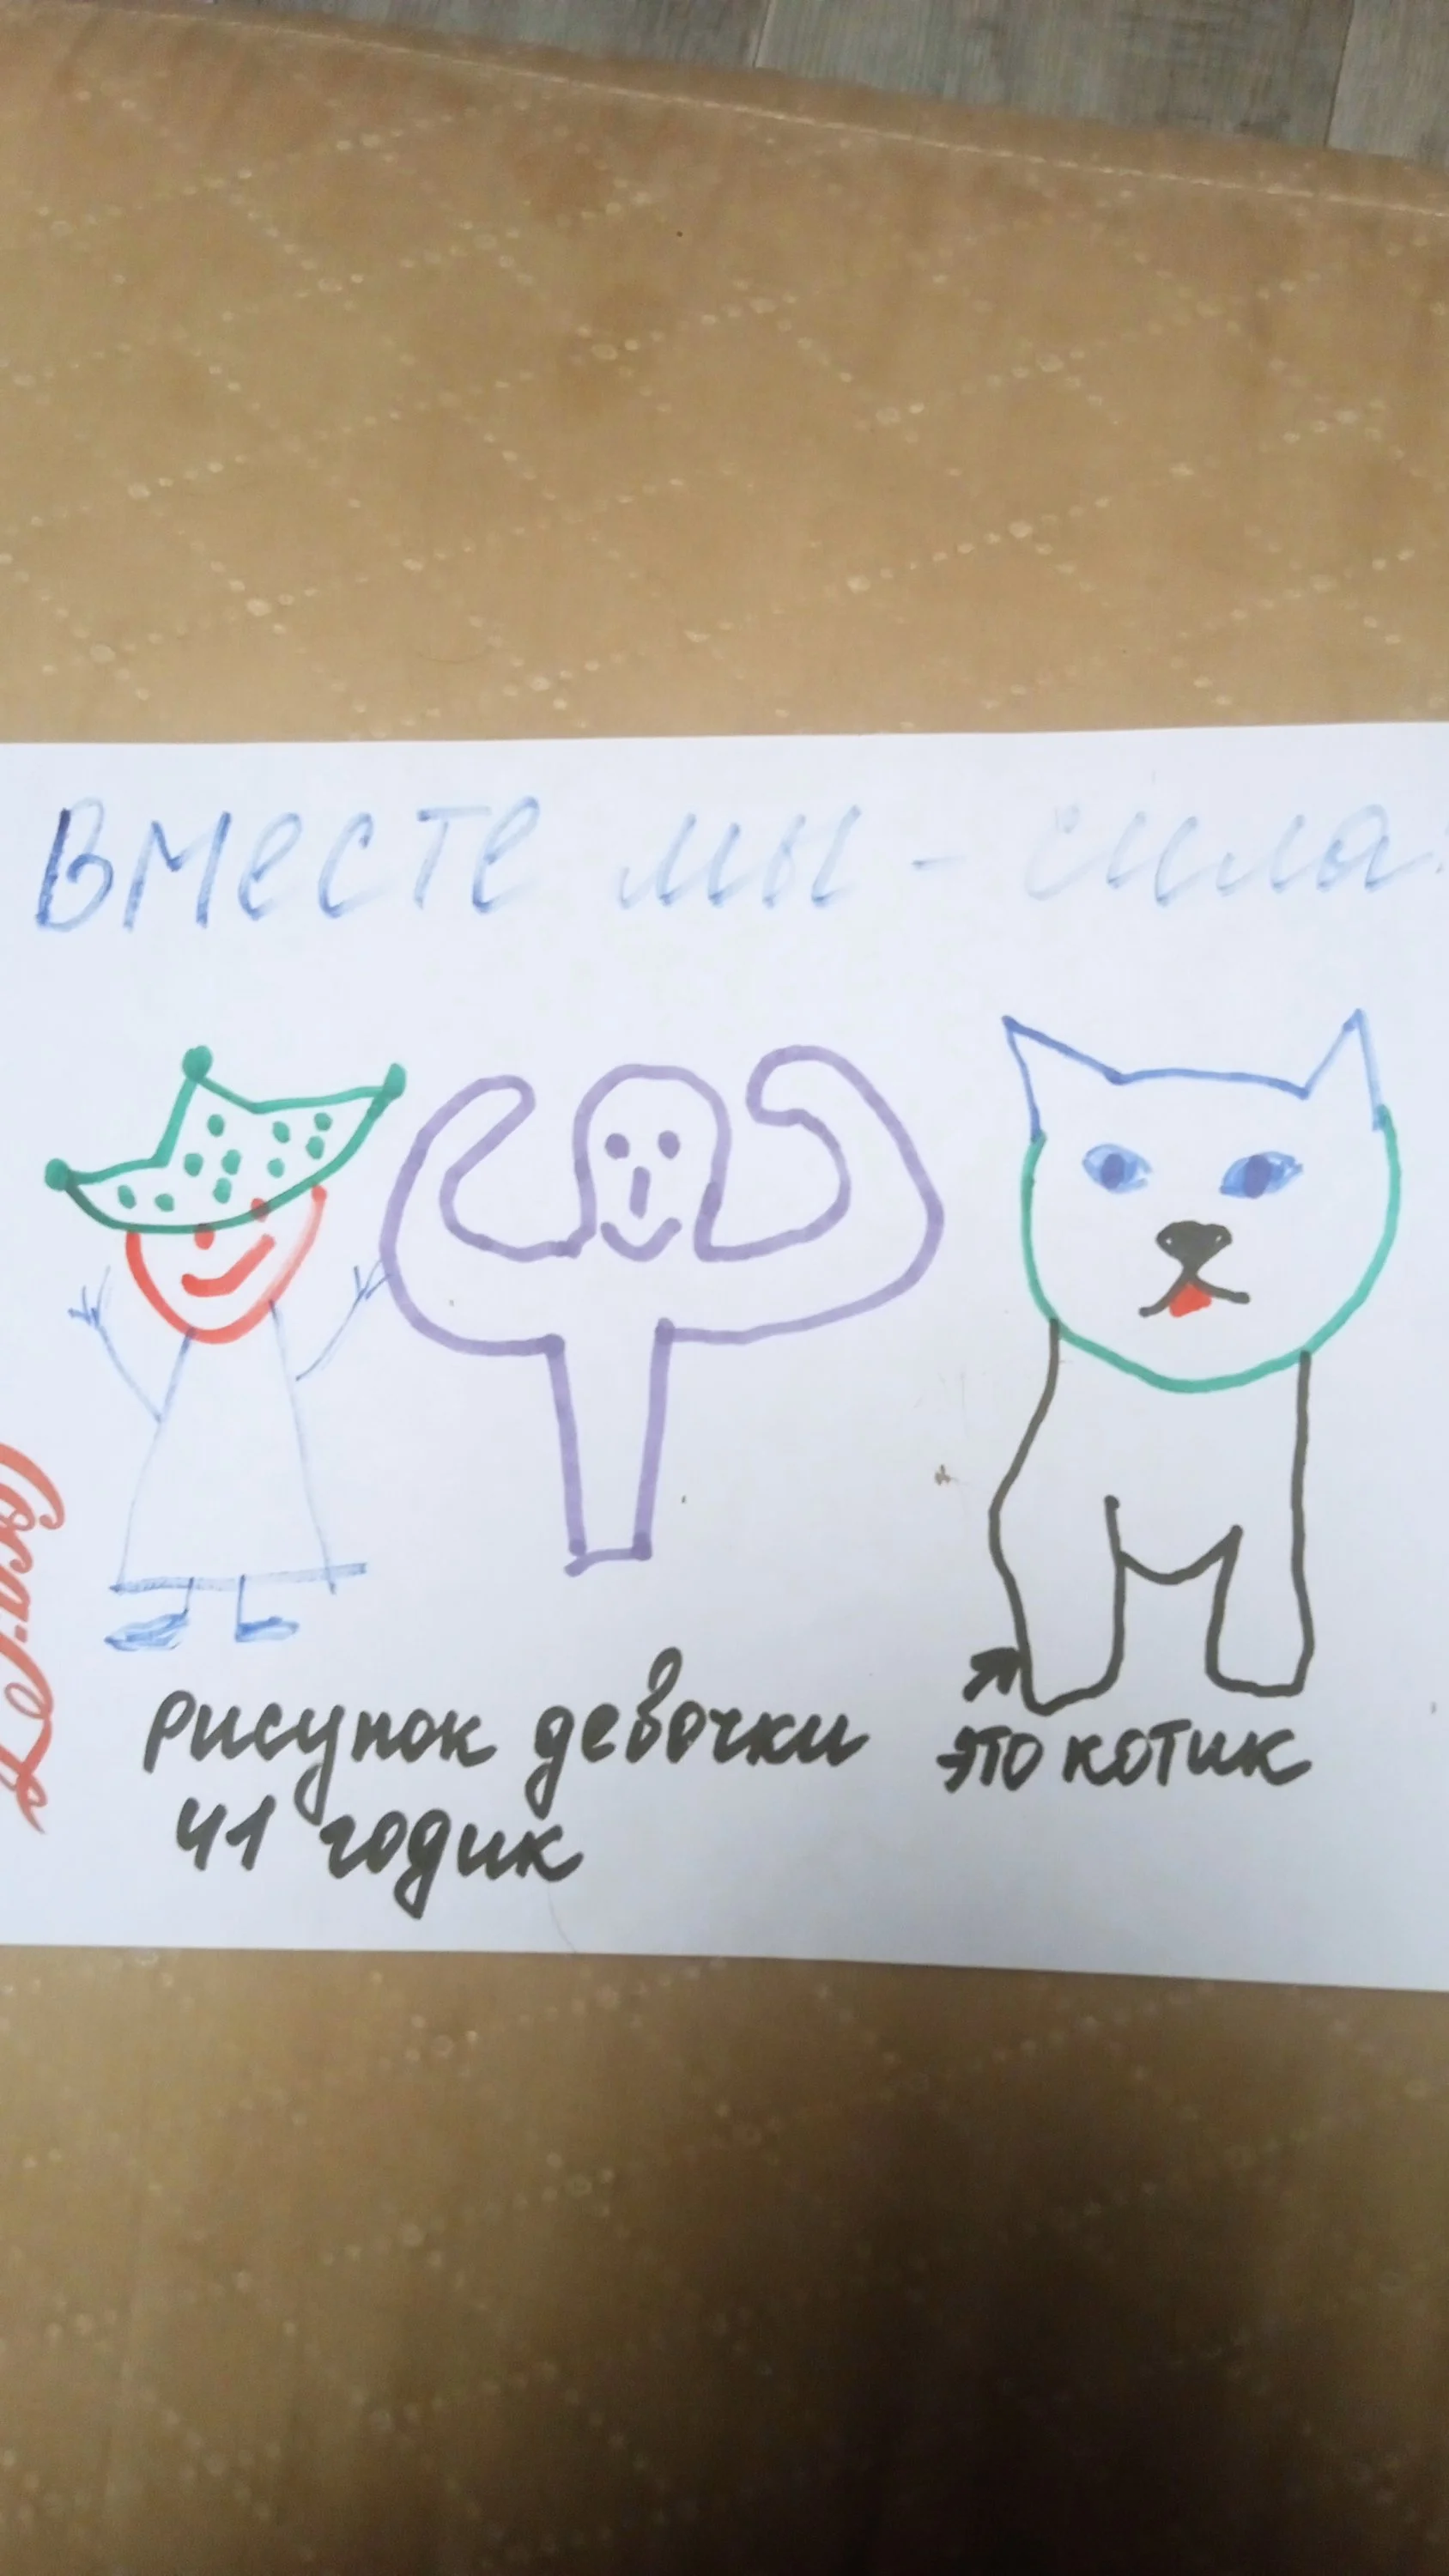 Вместе мы - сила.
рисунок девочки
41 годик
это котик